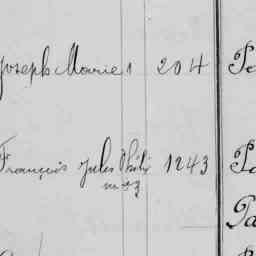 Joseph Marie 1 204 Pe
François Jules Phili 1243 Pa
Pa